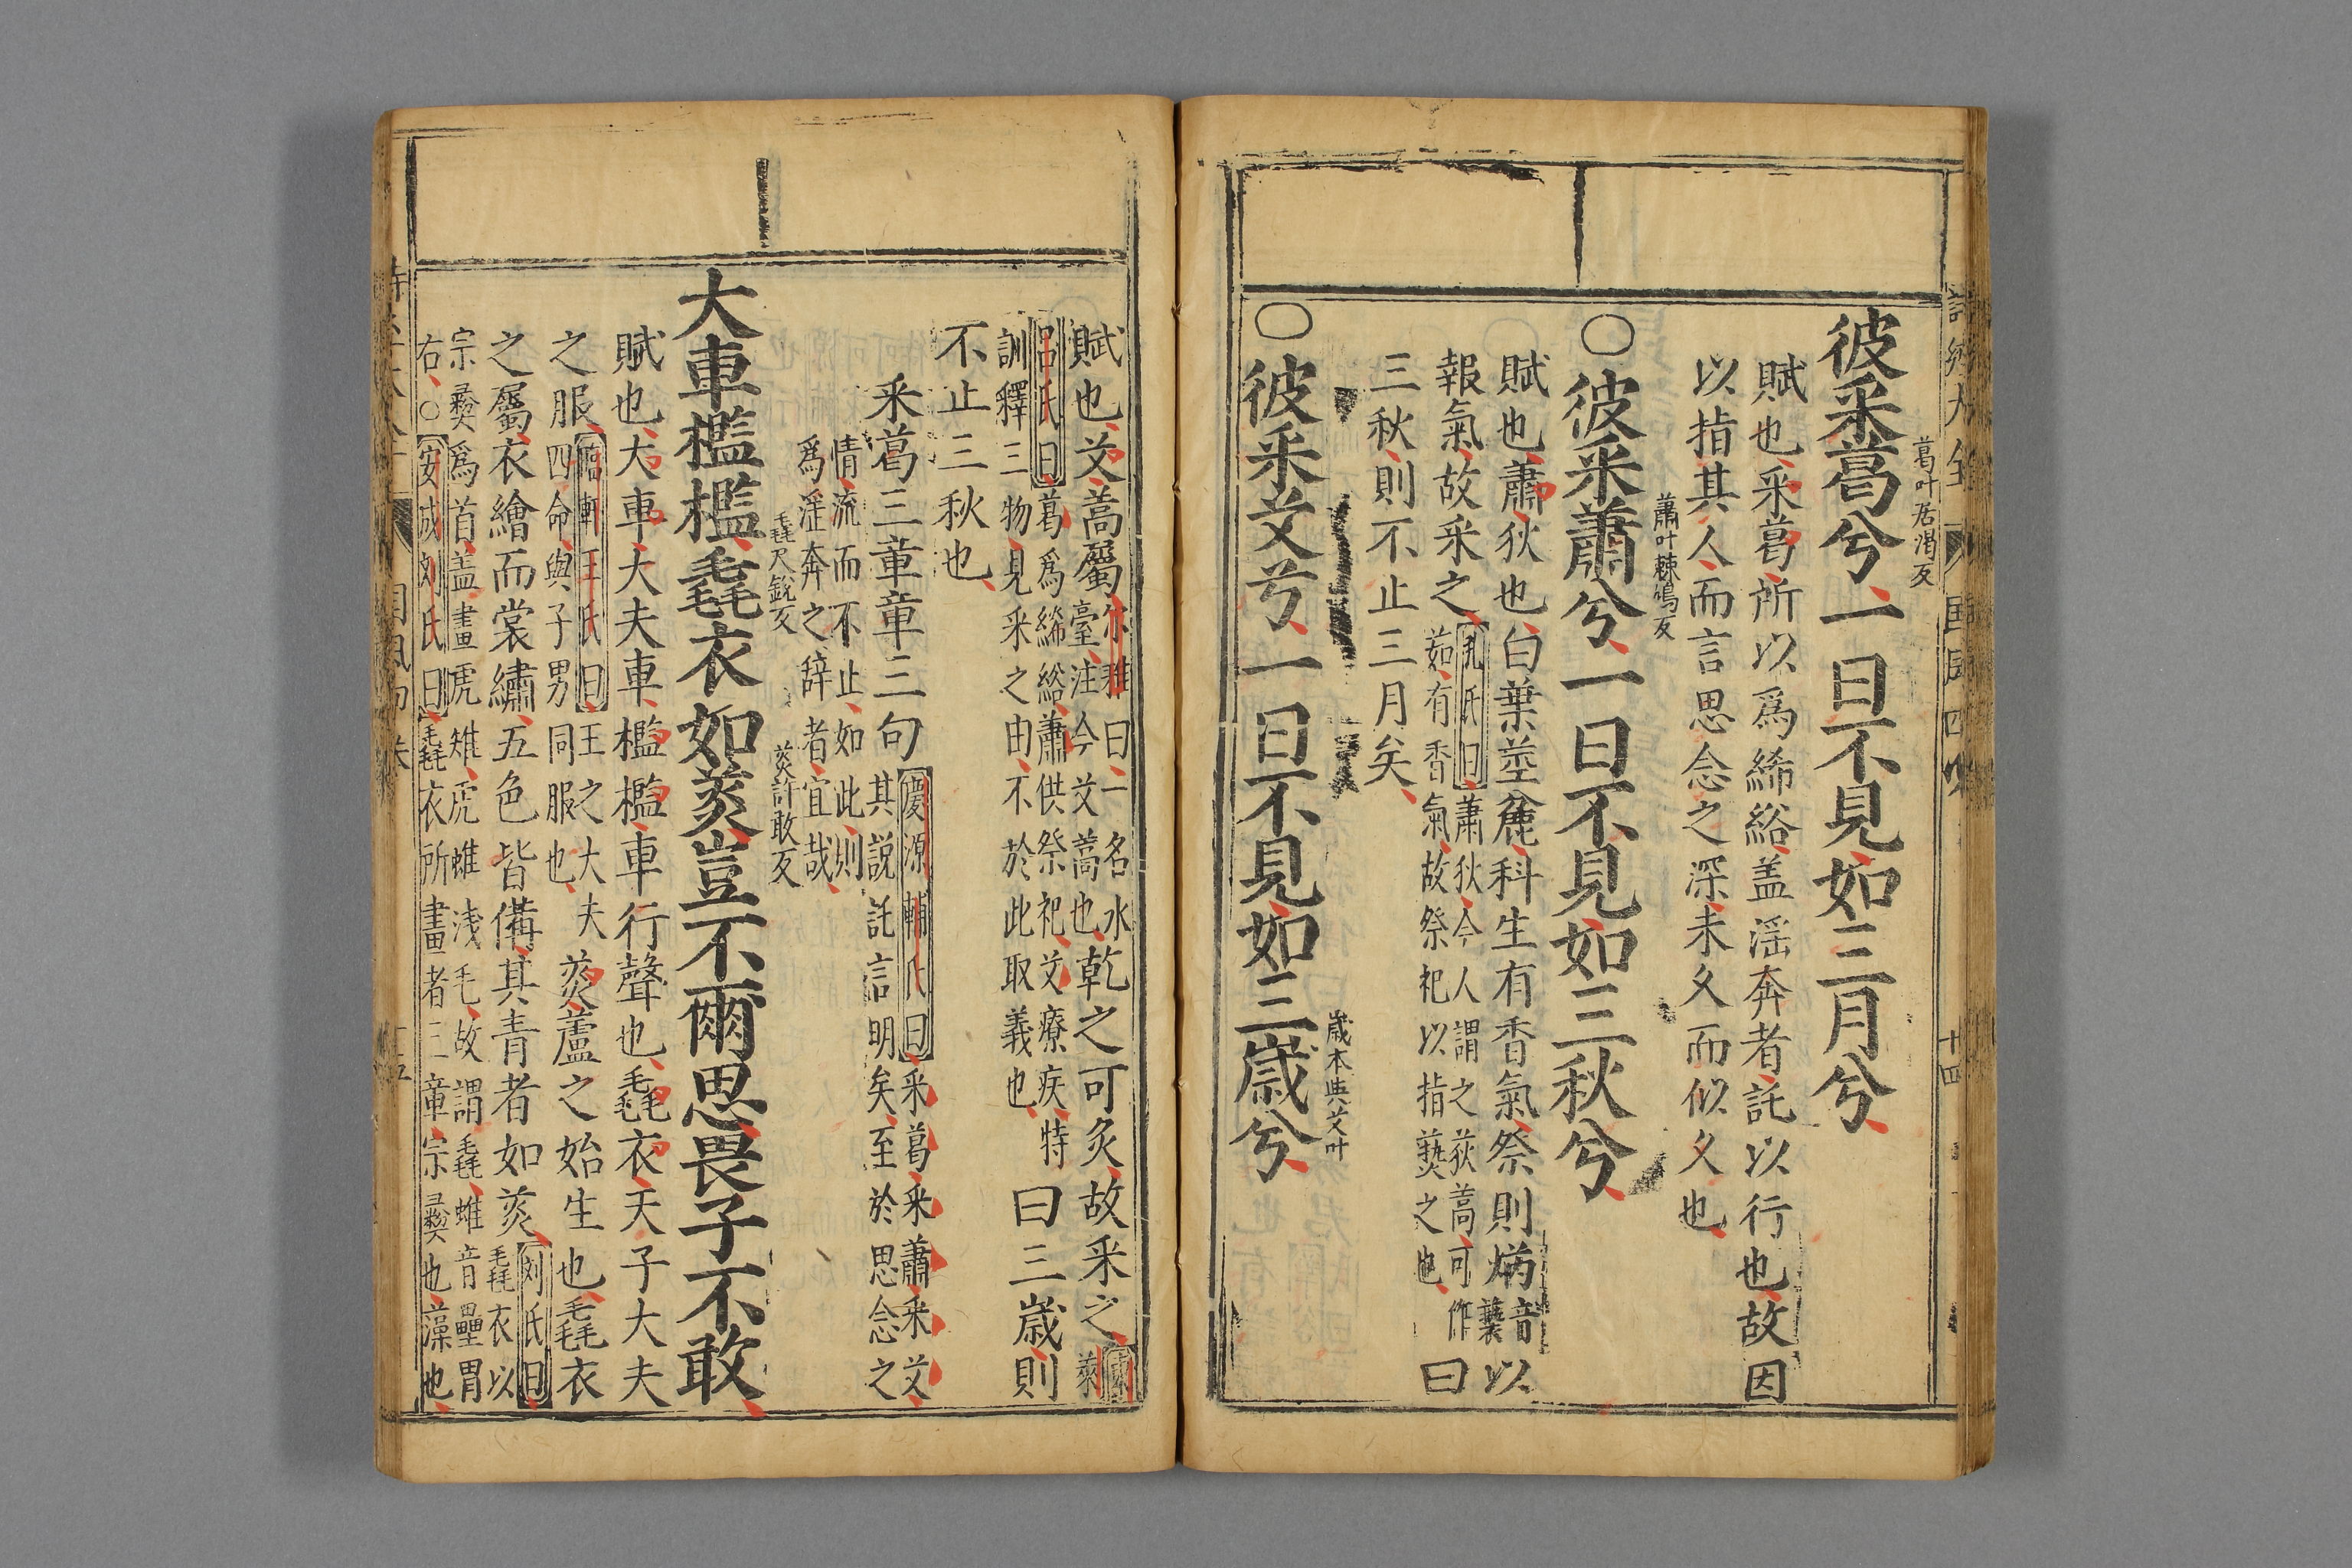 葛叶居渴反
彼采葛兮一日不見如三月兮
賦也采葛所以爲絺綌盖淫奔者託以行也故因
以指其人而言思念之深未乆而似乆也
蕭叶踈鳩反
○彼采蕭兮一日不見如三秋兮
賦也蕭荻也白葉莖麄科生有香氣祭則焫音爇以
報氣故采之孔氏曰蕭荻今人謂之荻蒿可作
茹有香氣故祭祀以指爇之也曰
三秋則不止三月矣
歳本與艾叶
○彼采艾兮一日不見如三歳兮
賦也艾蒿屬尓雅曰一名氷
臺注今艾蒿也乾之可灸故采之東
萊
呂氏曰葛爲絺綌蕭供祭祀艾療疾特
訓釋三物見采之由不於此取義也曰三歳則
不止三秋也
采葛三章章三句慶源輔氏曰采葛采蕭采艾
其說託信明矣至於思念之
情流而不止如此則
爲淫奔之辭者宜哉
毳尺銳反
菼許敢反
大車檻檻毳衣如菼豈不爾思畏子不敢
賦也大車大夫車檻檻車行聲也毳衣天子大夫
之服臨軒王氏曰王之大夫
四命與子男同服也菼蘆之始生也毳衣
之屬衣繪而裳繡五色皆備其青者如菼刘氏曰
毳衣以
宗彝爲首盖畫虎雉虎蜼浅毛故謂毳蜼音壘胃
右○安成刘氏曰毳衣所畫者三章宗彝也藻也
詩經大全
国風四
十四